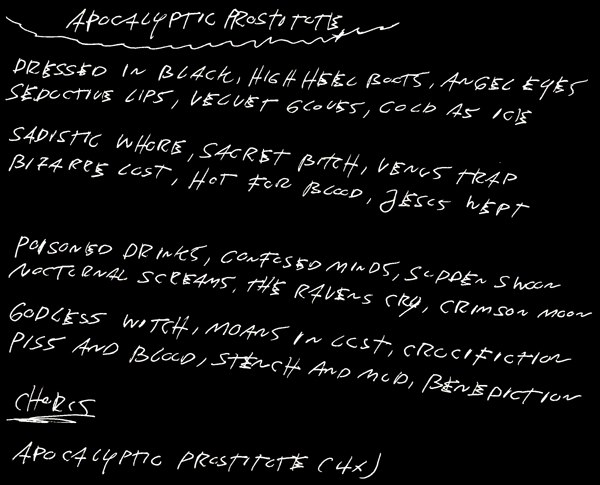 APOCALYPTIC PROSTITUTE
DRESSED IN BLACK, HIGH HEEL BOOTS, ANGEL EYES
SEDUCTIVE LIPS, VELVET GLOVES, COLD AS ICE
SADISTIC WHORE, SACRET BITCH, VENUS TRAP
BIZARRE LUST, HOT FOR BLOOD, JESUS WEPT
POISONED DRINKS, CONFUSED MINDS, SUDDEN SWOON
NOCTURNAL SCREAMS, THE RAVENS CRY, CRIMSON MOON
GODLESS WITCH, MOANS IN LUST, CRUCIFICTION
PISS AND BLOOD, STENCH AND MUD, BENEDICTION
CHORUS
APOCALYPTIC PROSTITUTE (4X)